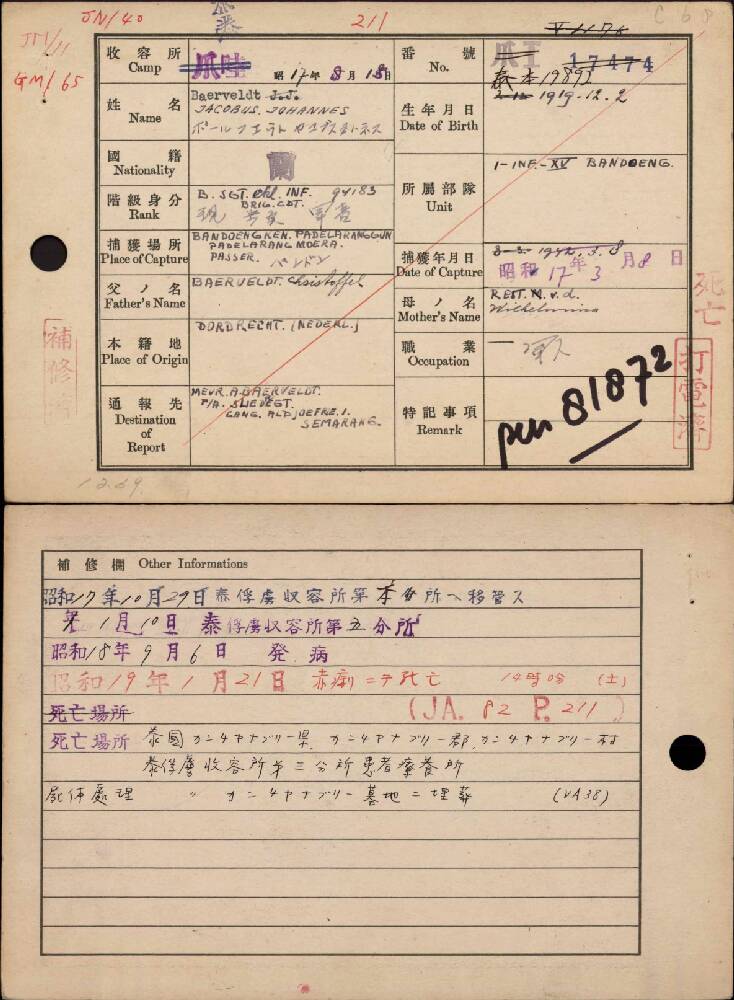 JN/40
211
V 1178
C 68
GM/65
收容所
Camp
爪哇
昭17年8月15日
番號
No.
爪王
17474
泰本 19892
姓名
Name
Baerveldt J.J.
JACOBUS. JOHANNES
生年月日
Date of Birth
1919.12.2
國籍
Nationality
蘭
階級身分
Rank
B. SGT. INF. 94183
BRIG. CDT.
所屬部隊
Unit
1-INF-XV BANDOENG.
捕獲場所
Place of Capture
BANDOENG KEN. PADELARANGGUN
PADELARANG MOERA.
PASSER. バンドン
捕獲年月日
Date of Capture
昭和17年3月8日
父ノ名
Father's Name
BAERVELDT. Christoffel
母ノ名
Mother's Name
v.d.
Wilhelmina
本籍地
Place of Origin
DORDRECHT. (NEDERL.)
職業
Occupation
軍人
通報先
Destination
of
Report
MEVR. A. BAERVELDT.
GANG. ALDJOEFRE. I.
SEMARANG.
特記事項
Remark
81872
死亡
打電濟
補修
12.69.
補修欄 Other Informations
昭和17年10月29日泰俘虜収容所第本分所ヘ移管ス
1月10日 泰俘虜収容所第五分所
昭和18年9月6日 発病
昭和19年1月21日 赤痢ニテ死亡 14時0分 (土)
死亡場所 (JA. 82 P. 211)
死亡場所 泰國カンチヤナブリー県、カンチヤナブリー郡、カンチヤナブリー村
泰俘虜収容所第三分所患者療養所
死体處理 〃 カンチヤナブリー墓地ニ埋葬 (VA38)